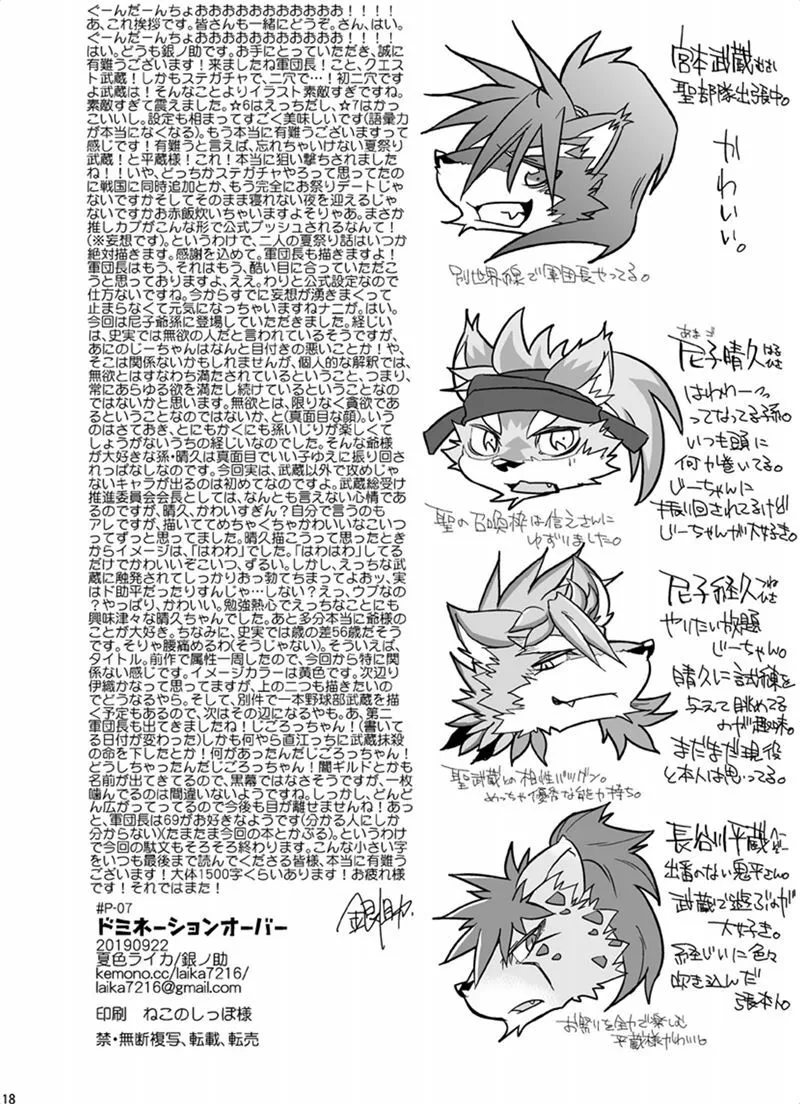 ぐーんだーんちょおおおおおおおおおおお！！！！
あ、これ挨拶です。皆さんも一緒にどうぞ。さん、はい。
ぐーんだーんちょおおおおおおおおおおお！！！！
はい。どうも銀ノ助です。お手にとっていただき、誠に
有難うございます！来ましたね軍団長！こと、クエス
ト武蔵！しかもステガチャで、二穴で…！初二穴です
よ武蔵は！そんなことよりイラスト素敵すぎですね。
素敵すぎて震えました。☆6はえっちだし、☆7はかっ
こいいし。設定も相まってすごく美味しいです(語彙力
が本当になくなる)。もう本当に有難うございますって
感じです！有難うと言えば、忘れちゃいけない夏祭り
武蔵！と平蔵様！これ！本当に狙い撃ちされました
ね！！いや、どっちかステガチャやろって思ってたの
に戦国に同時追加とか、もう完全にお祭りデートじゃ
ないですかそしてそのまま寝れない夜を迎えるじゃ
ないですかお赤飯炊いちゃいますよそりゃあ。まさか
推しカプがこんな形で公式プッシュされるなんて！
(※妄想です)。というわけで、二人の夏祭り話はいつか
絶対描きます。感謝を込めて。軍団長も描きますよ！
軍団長はもう、それはもう、酷い目に合っていただこ
うと思っておりますよ、ええ。わりと公式設定なので
仕方ないですね。今からすでに妄想が湧きまくって
止まらなくて元気になっちゃいますねナニが。はい。
今回は尼子爺孫に登場していただきました。経じい
は、史実では無欲の人だと言われているそうですが、
あにのじーちゃんはなんと目付きの悪いことか！や、
そこは関係ないかもしれませんが、個人的な解釈では、
無欲とはすなわち満たされているということ、つまり、
常にあらゆる欲を満たし続けているということなの
ではないかと思います。無欲とは、限りなく貪欲であ
るということなのではないか、と(真面目な顔)。いう
のはさておき、とにもかくにも孫いじりが楽しくて
しょうがないうちの経じいなのでした。そんな爺様
が大好きな孫・晴久は真面目でいい子ゆえに振り回さ
れっぱなしなのです。今回実は、武蔵以外で攻めじゃ
ないキャラが出るのは初めてなのですよ。武蔵総受け
推進委員会会長としては、なんとも言えない心情であ
るのですが、晴久、かわいすぎん？自分で言うのも
アレですが、描いててめちゃくちゃかわいいなこいつ
ってずっと思ってました。晴久描こうって思ったとき
からイメージは、「はわわ」でした。「はわはわ」してる
だけでかわいいぞこいつ、ずるい。しかし、えっちな武
蔵に触発されてしっかりおっ勃てちまってよおッ、実
はド助平だったりすんじゃ…しない？えっ、ウブなの
？やっぱり、かわいい。勉強熱心でえっちなことにも
興味津々な晴久ちゃんでした。あと多分本当に爺様の
ことが大好き。ちなみに、史実では歳の差56歳だそう
です。そりゃ腰痛めるわ(そうじゃない)。そういえば、
タイトル。前作で属性一周したので、今回から特に関
係ない感じです。イメージカラーは黄色です。次辺り
伊織かなって思ってますが、上の二つも描きたいの
でどうなるやら。そして、別件で一本野球部武蔵を描
く予定もあるので、次はその辺になるやも。あ、第二
軍団長も出てきましたね！じごろっちゃん！(書いて
る日付が変わった)しかも何やら直江っちに武蔵抹殺
の命を下したとか！何があったんだじごろっちゃん！
どうしちゃったんだじごろっちゃん！闇ギルドとかも
名前が出てきてるので、黒幕ではなさそうですが、一枚
噛んでるのは間違いないようですね。しっかし、どんど
ん広がってってるので今後も目が離せませんね！あっ
と、軍団長は69がお好きなようです(分かる人にしか
分からない)(たまたま今回の本とかぶる)。というわけ
で今回の駄文もそろそろ終わります。こんな小さい字
をいつも最後まで読んでくださる皆様、本当に有難う
ございます！大体1500字くらいあります！お疲れ様
です！それではまた！
銀ノ助
#P-07
ドミネーションオーバー
20190922
夏色ライカ/銀ノ助
kemono.cc/laika7216/
laika7216@gmail.com
印刷　ねこのしっぽ様
禁・無断複写、転載、転売
18
宮本武蔵むさし
聖部隊出張中。
かわいい。
別世界線で軍団長やってる。
尼子晴久はるひさ
あまご
はわわーっ
ってなってる孫。
いつも頭に
何か巻いてる。
じーちゃんに
振り回されてるけど
じーちゃんが大好き。
聖の召喚枠は信之さんに
ゆずりました。
尼子経久つねひさ
やりたい放題
じーちゃん。
晴久に試練を
与えて眺めてる
のが趣味。
まだまだ現役
と本人は思ってる。
聖武蔵との相性バツグン。
めっちゃ優秀な能力持ち。
長谷川平蔵へいぞー
出番のない鬼平さん。
武蔵で遊ぶのが
大好き。
経じいに色々
吹き込んだ
張本人。
お祭りを全力で楽しむ
平蔵様かわいい。